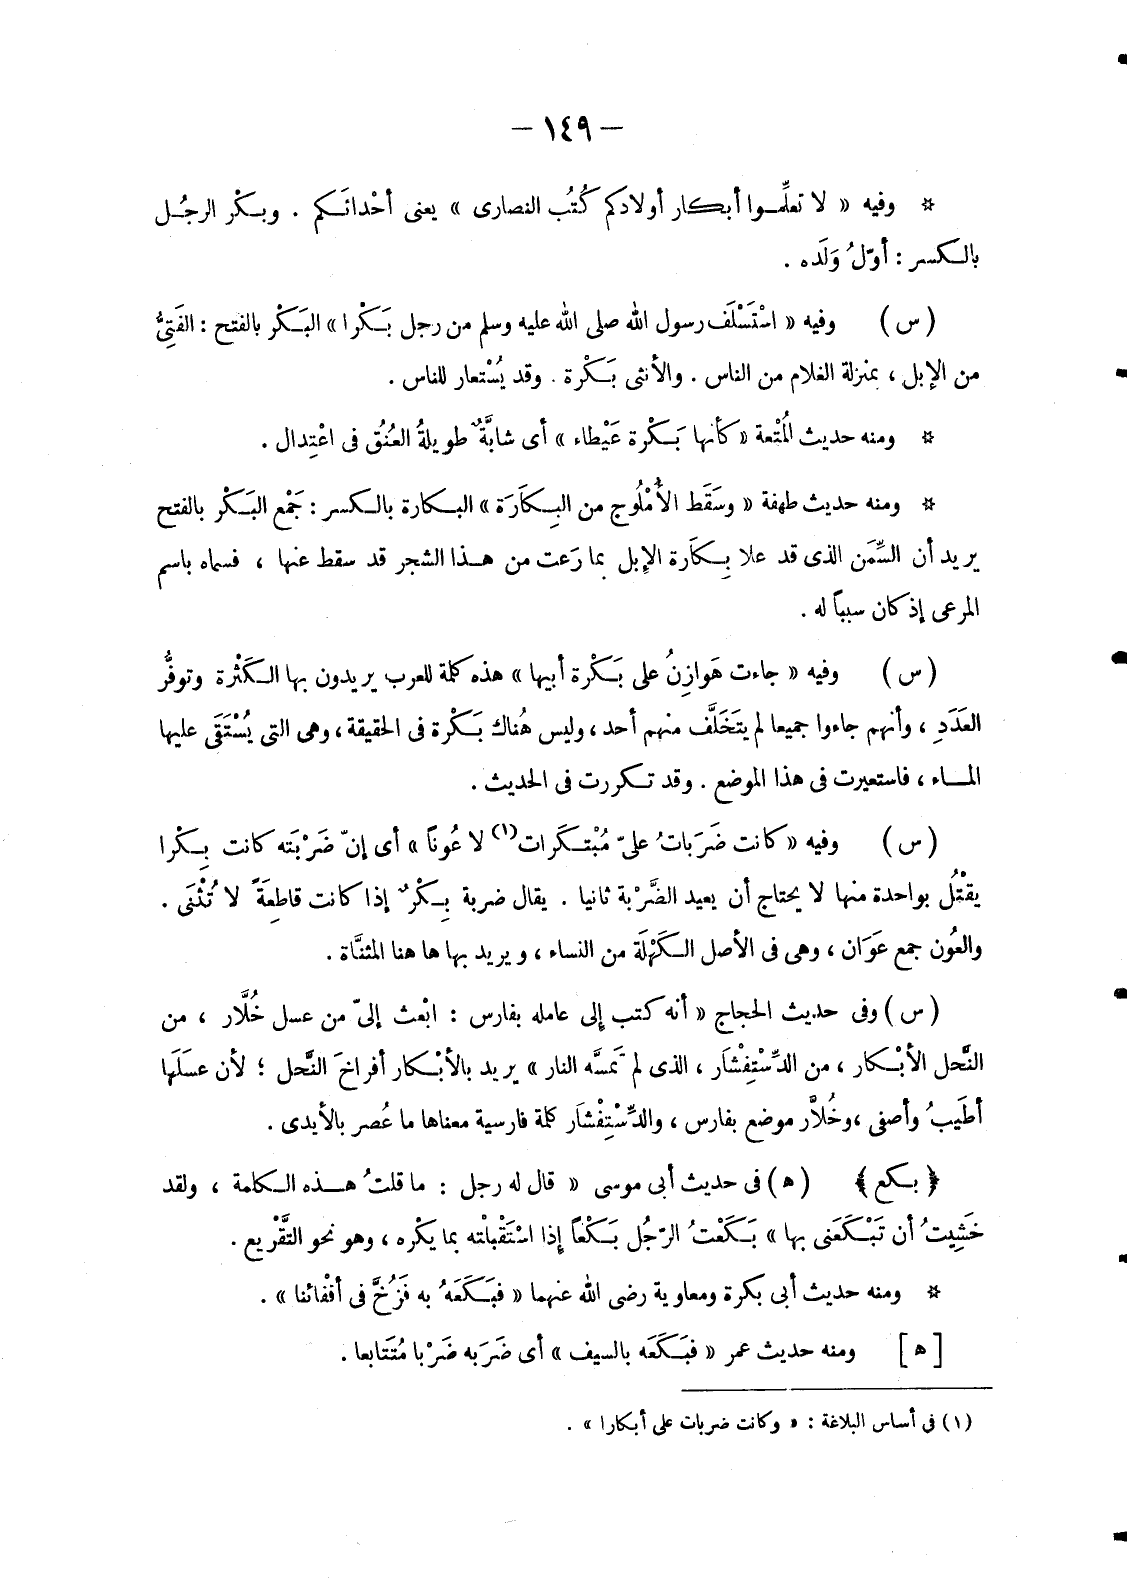 — ١٤٩ —
* وفيه « لا تعلِّموا أبكار أولادكم كُتُب النصارى » يعنى أحْداثَكم . وبكْر الرجُل
بالكسر : أوّلُ وَلَده .
( س ) وفيه « اسْتَسْلَف رسول الله صلى الله عليه وسلم من رجل بَكْرا » البَكْر بالفتح : الفَتِىُّ
من الإبل ، بمنزلة الغلام من الناس . والأنثى بَكْرة . وقد يُسْتعار للناس .
* ومنه حديث المُتْعة « كأنها بَكْرة عَيْطاء » أى شابَّةٌ طويلةُ العُنُق فى اعْتِدال .
* ومنه حديث طهفة « وسَقَط الأُمْلُوج من البِكاَرَة » البكارة بالكسر : جَمْع البَكْر بالفتح
يريد أن السِّمَن الذى قد علا بِكَارة الإبل بما رَعت من هذا الشجر قد سقط عنها ، فسماه باسم
المرعى إذ كان سبباً له .
( س ) وفيه « جاءت هَوازِنُ على بَكْرة أبيها » هذه كلمة للعرب يريدون بها الكَثْرة وتوفُّر
العَدَدِ ، وأنهم جاءوا جميعا لم يتَخَلَّف منهم أحد ، وليس هُناك بَكْرة فى الحقيقة ، وهى التى يُسْتَقَى عليها
المـاء ، فاستعيرت فى هذا الموضع . وقد تكررت فى الحديث .
( س ) وفيه « كانت ضَرَباتُ علىّ مُبْتكَرات(١) لا عُوناً » أى إنّ ضَرْبَته كانت بِكْرا
يقْتُل بواحدة منها لا يحتاج أن يعيد الضَّرْبة ثانيا . يقال ضربة بِكْرٌ إذا كانت قاطِعَةً لا تُثْنَى .
والعُون جمع عَوَان ، وهى فى الأصل الكَهْلَة من النساء ، ويريد بها ها هنا المثنَّاة .
( س ) وفى حديث الحجاج « أنه كتب إلى عامله بفارس : ابْعث إلىّ من عسل خُلَّار ، من
النَّحل الأبْكار ، من الدِّسْتِفْشَار ، الذى لم تمسَّه النار » يريد بالأبْكار أفراخَ النَّحل ؛ لأن عسَلَها
أطيَبُ وأصفى ، وخُلاَّر موضع بفارس ، والدِّسْتِفْشَار كلمة فارسية معناها ما عُصر بالأيدى .
﴿ بكع ﴾ ( ه ) فى حديث أبى موسى « قال له رجل : ما قلتُ هـذه الكلمة ، ولقد
خَشِيتُ أن تَبْكَعَنى بها » بَكَعْتُ الرّجُل بَكْعاً إذا اسْتَقْبلْته بما يكْره ، وهو نحو التَّقْريع .
* ومنه حديث أبى بكرة ومعاوية رضى الله عنهما « فبَكَعَهُ به فَزُخَّ فى أقْفائنا » .
[ ه ] ومنه حديث عمر « فبَكَعَه بالسيف » أى ضَرَبه ضَرْبا مُتَتابعا .
(١) فى أساس البلاغة : « وكانت ضربات على أبكارا » .